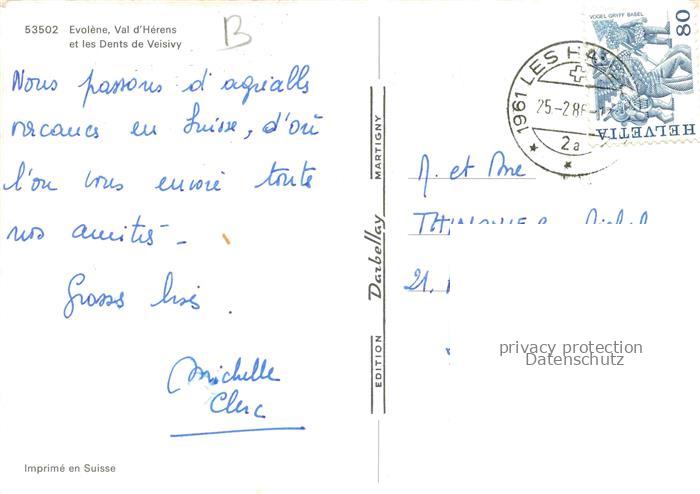 53502 Evolène, Val d'Hérens
et les Dents de Veisivy
B
Nous passons d'agréables
vacances en Suisse, d'où
l'on vous envoie toute
nos amitiés -
Grosses bises.
Michelle
Clerc
Imprimé en Suisse
EDITION Darbellay MARTIGNY
VOGEL GRYFF BASEL
80
HELVETIA
1961 LES HA
25.-2.86
2a
M. et Mme
21.
privacy protection
Datenschutz